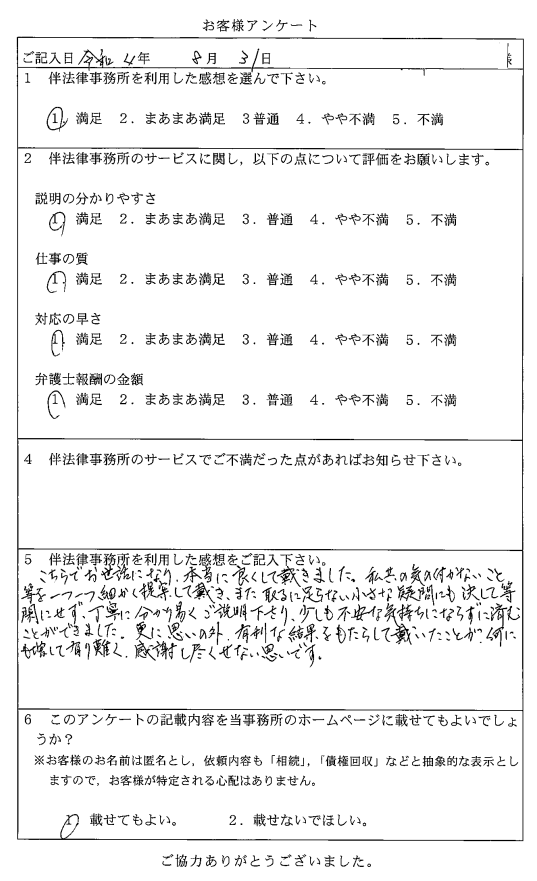 お客様アンケート
ご記入日 令和 4年 8月 31日 様
1 伴法律事務所を利用した感想を選んで下さい。
1. 満足 2. まあまあ満足 3 普通 4. やや不満 5. 不満
2 伴法律事務所のサービスに関し,以下の点について評価をお願いします。
説明の分かりやすさ
1. 満足 2. まあまあ満足 3. 普通 4. やや不満 5. 不満
仕事の質
1. 満足 2. まあまあ満足 3. 普通 4. やや不満 5. 不満
対応の早さ
1. 満足 2. まあまあ満足 3. 普通 4. やや不満 5. 不満
弁護士報酬の金額
1. 満足 2. まあまあ満足 3. 普通 4. やや不満 5. 不満
4 伴法律事務所のサービスでご不満だった点があればお知らせ下さい。
5 伴法律事務所を利用した感想をご記入下さい。
こちらでお世話になり、本当に良くして戴きました。私共の気の付かないこと
等を一つ一つ細かく提案して戴き、また取るに足らない小さな疑問にも決して等
閑にせず、丁寧に分かり易くご説明下さり、少しも不安な気持ちにならずに済む
ことができました。更に思いの外、有利な結果をもたらして戴いたことが、何に
も増して有り難く、感謝し尽くせない思いです。
6 このアンケートの記載内容を当事務所のホームページに載せてもよいでしょ
うか?
※お客様のお名前は匿名とし,依頼内容も「相続」,「債権回収」などと抽象的な表示とし
ますので,お客様が特定される心配はありません。
1. 載せてもよい。 2. 載せないでほしい。
ご協力ありがとうございました。